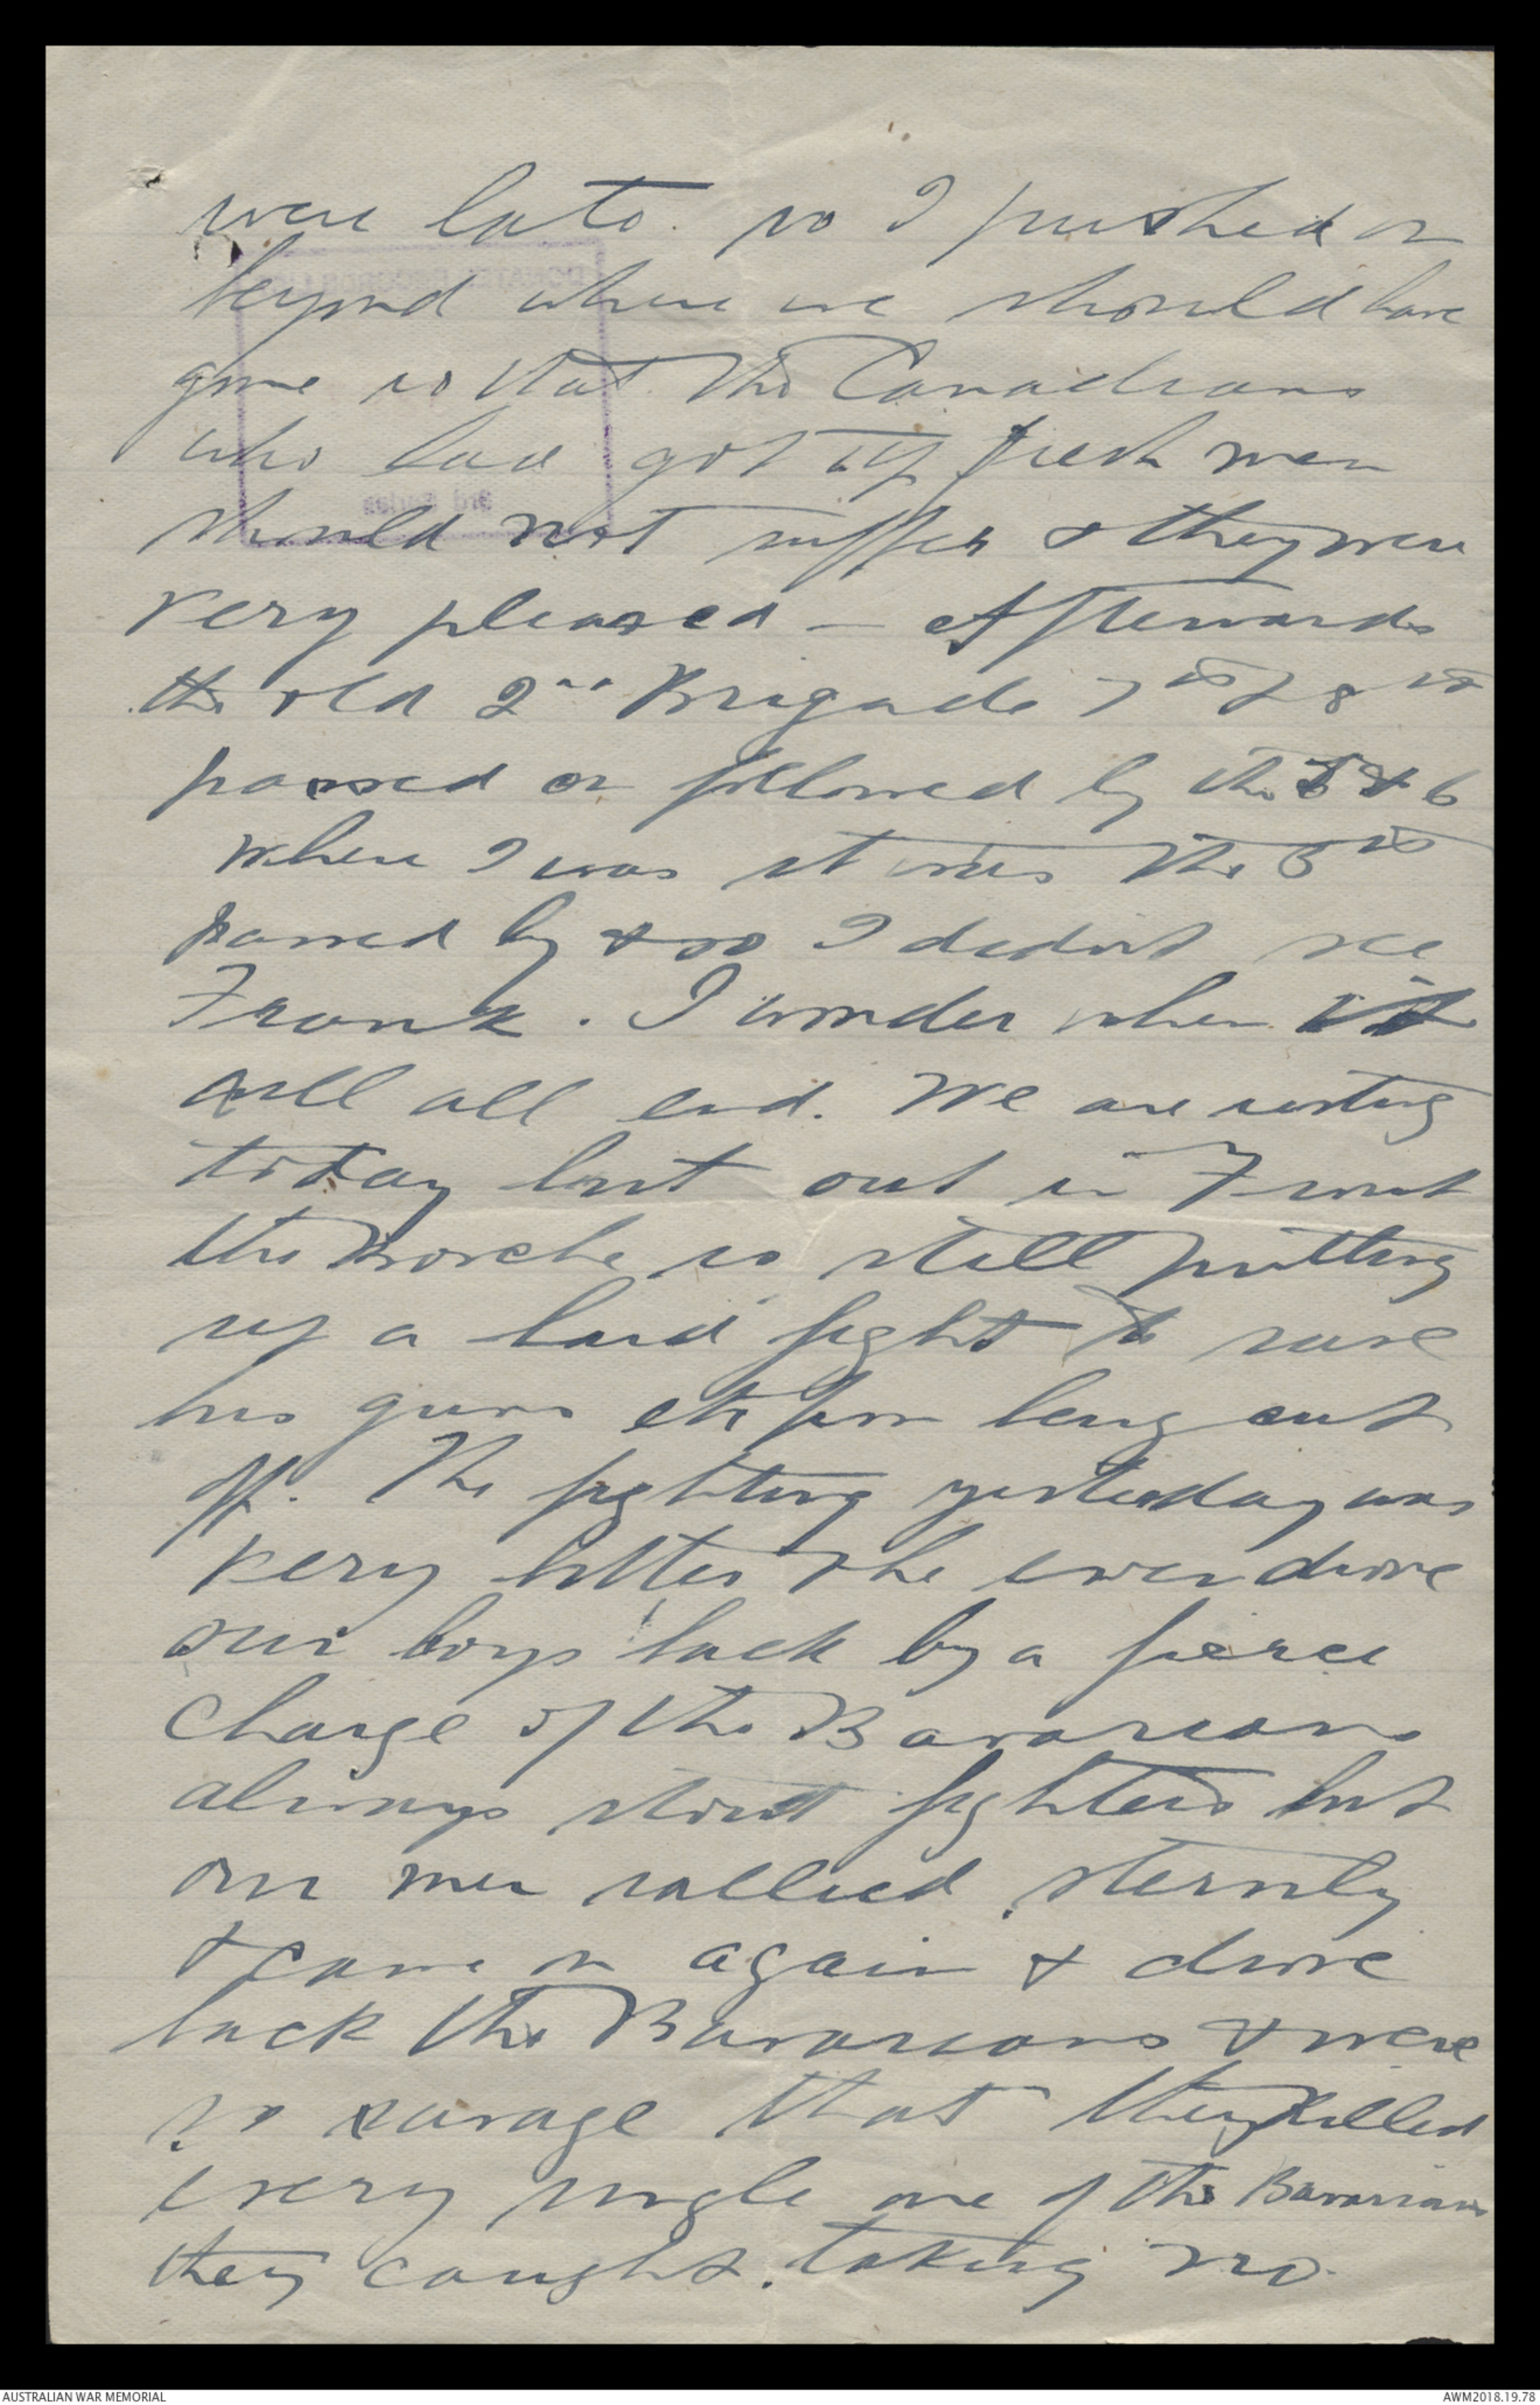 were late. so I pushed on
beyond where we should have
gone so that the Canadians
who had got up fresh men
should not suffer & they were
very pleased – Afterwards
the old 2nd Brigade 7th & 8th
passed on followed by the 5 & 6
where I was it was the 5th
passed by & so I didnt see
Frank. I wonder when it
will all end. We are resting
today but out in Front
the Bosche is still putting
up a hard fight to save
his guns etc from being cut
off. The fighting yesterday was
very bitter & he even drove
our boys back by a fierce
charge of the Bavarians
always stout fighters but
our men rallied sternly
& came on again & drove
back the Bavarians & were
so savage that they killed
every single one of the Bavarians
they caught. taking no
3rd Series
AUSTRALIAN WAR MEMORIAL
AWM2018.19.78